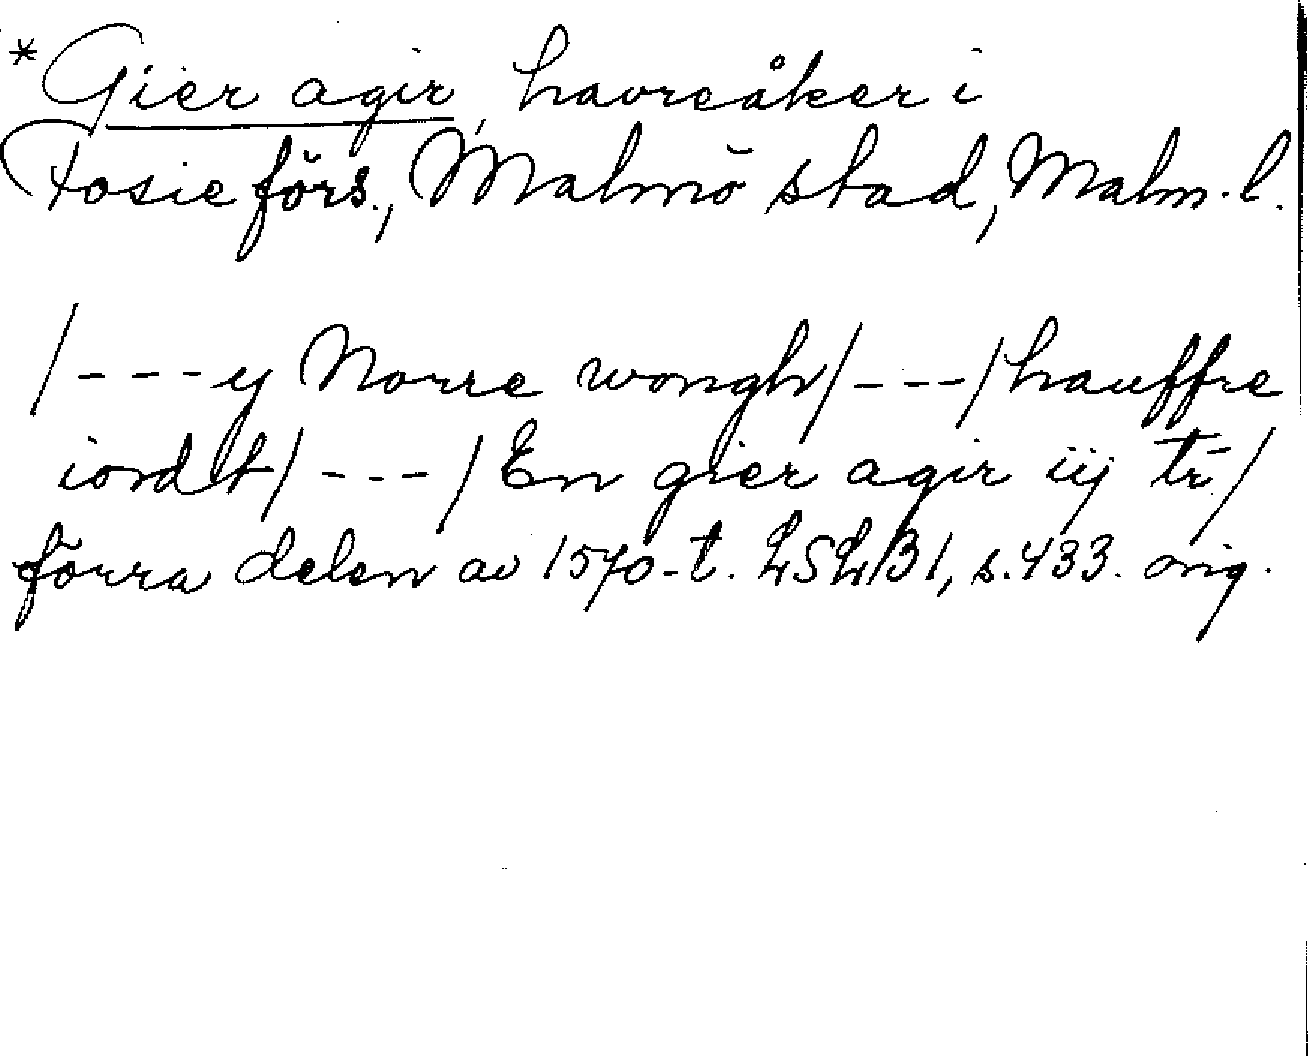 *Gier agir, havreåker i
Fosie förs., Malmö stad, Malm. l.
/---y Norre wongh/---/hauffre
iordt/---/En gier agir iij tr̄/
förra delen av 1570-t. LSLB1, s. 433. orig.